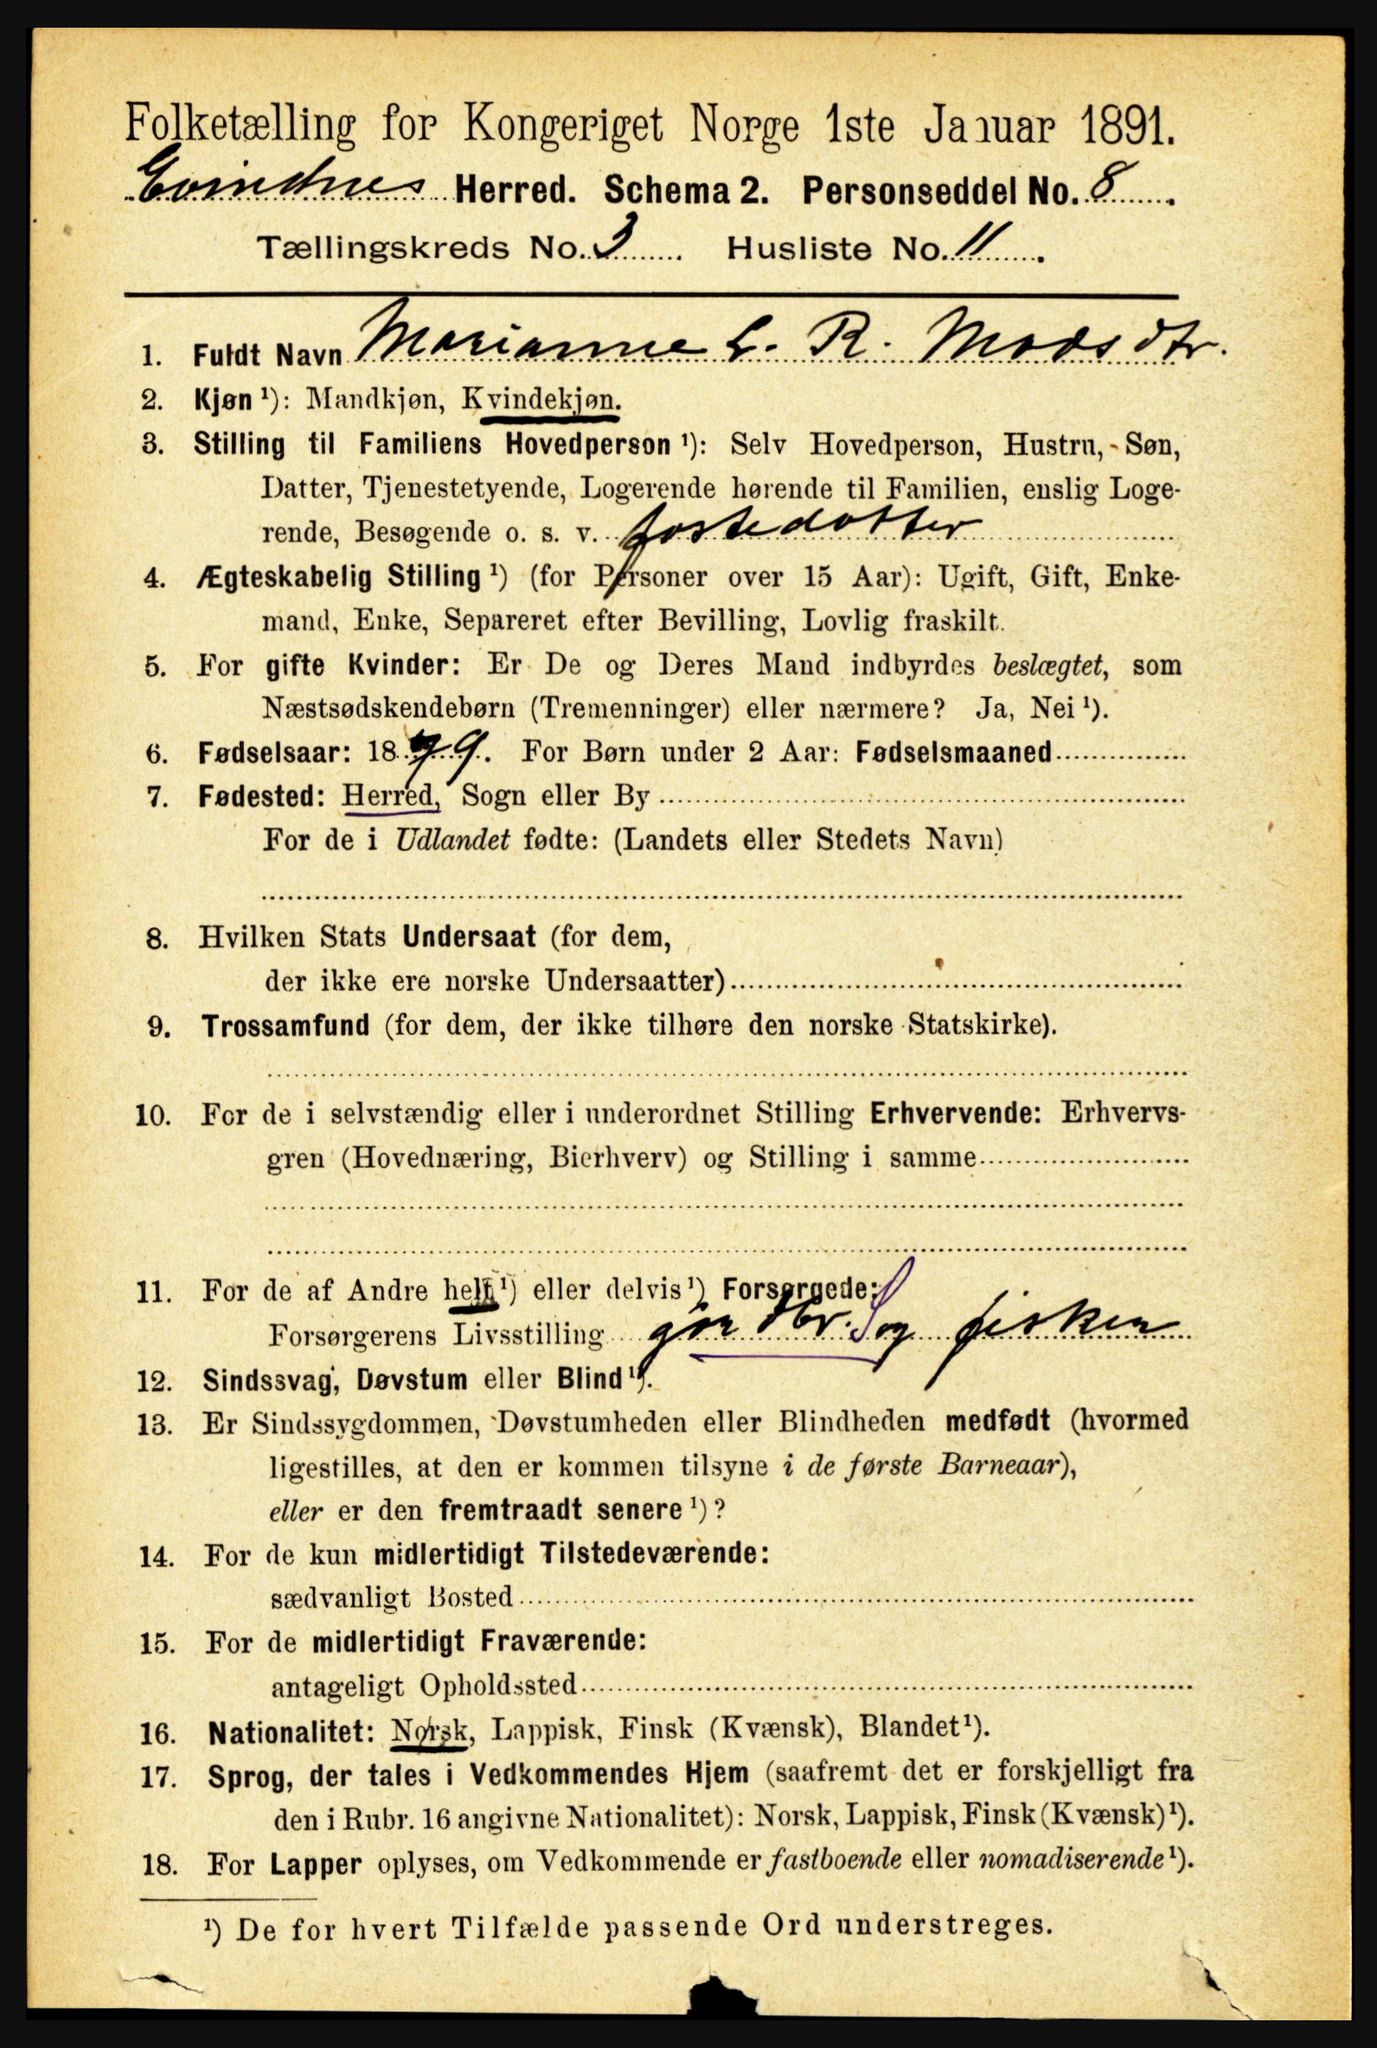 Folketælling for Kongeriget Norge 1ste Januar 1891.
Evindnes Herred. Schema 2. Personseddel No. 8.
Tællingskreds No. 3. Husliste No. 11.
1. Fuldt Navn Marianne L. R. Madsdtr.
2. Kjøn ¹): Mandkjøn, Kvindekjøn.
3. Stilling til Familiens Hovedperson ¹): Selv Hovedperson, Hustru, Søn,
Datter, Tjenestetyende, Logerende hørende til Familien, enslig Loge-
rende, Besøgende o. s. v. fostedatter
4. Ægteskabelig Stilling ¹) (for Personer over 15 Aar): Ugift, Gift, Enke-
mand, Enke, Separeret efter Bevilling, Lovlig fraskilt.
5. For gifte Kvinder: Er De og Deres Mand indbyrdes beslægtet, som
Næstsødskendebørn (Tremenninger) eller nærmere? Ja, Nei ¹).
6. Fødselsaar: 1879. For Børn under 2 Aar: Fødselsmaaned
7. Fødested: Herred, Sogn eller By
For de i Udlandet fødte: (Landets eller Stedets Navn)
8. Hvilken Stats Undersaat (for dem,
der ikke ere norske Undersaatter)
9. Trossamfund (for dem, der ikke tilhøre den norske Statskirke).
10. For de i selvstændig eller i underordnet Stilling Erhvervende: Erhvervs-
gren (Hovednæring, Bierhverv) og Stilling i samme
11. For de af Andre helt ¹) eller delvis ¹) Forsørgede:
Forsørgerens Livsstilling gaardbr. S og fisker
12. Sindssvag, Døvstum eller Blind ¹).
13. Er Sindssygdommen, Døvstumheden eller Blindheden medfødt (hvormed
ligestilles, at den er kommen tilsyne i de første Barneaar),
eller er den fremtraadt senere ¹)?
14. For de kun midlertidigt Tilstedeværende:
sædvanligt Bosted
15. For de midlertidigt Fraværende:
antageligt Opholdssted
16. Nationalitet: Norsk, Lappisk, Finsk (Kvænsk), Blandet ¹).
17. Sprog, der tales i Vedkommendes Hjem (saafremt det er forskjelligt fra
den i Rubr. 16 angivne Nationalitet): Norsk, Lappisk, Finsk (Kvænsk) ¹).
18. For Lapper oplyses, om Vedkommende er fastboende eller nomadiserende ¹).
¹) De for hvert Tilfælde passende Ord understreges.